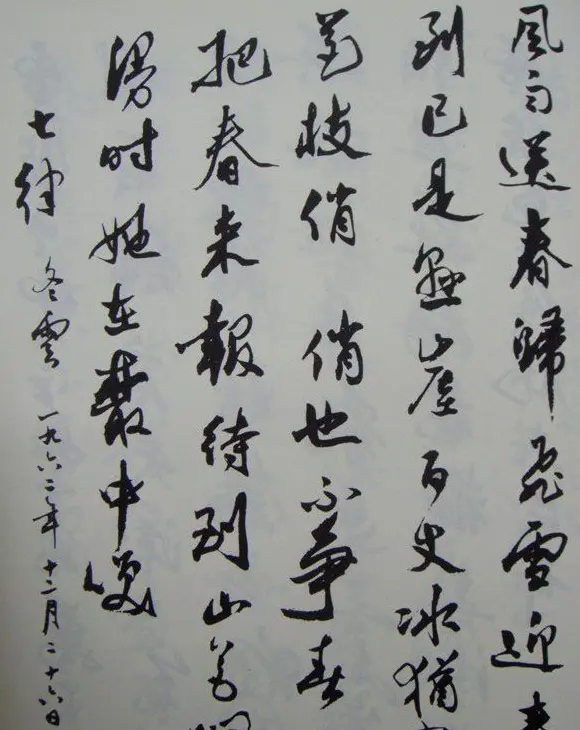 风雨送春歸飛雪迎春
到已是懸崖百丈冰猶
花枝俏 俏也不爭春
把春来報待到山花爛
漫时她在叢中笑
七律 冬雲 一九六二年十二月二十六日